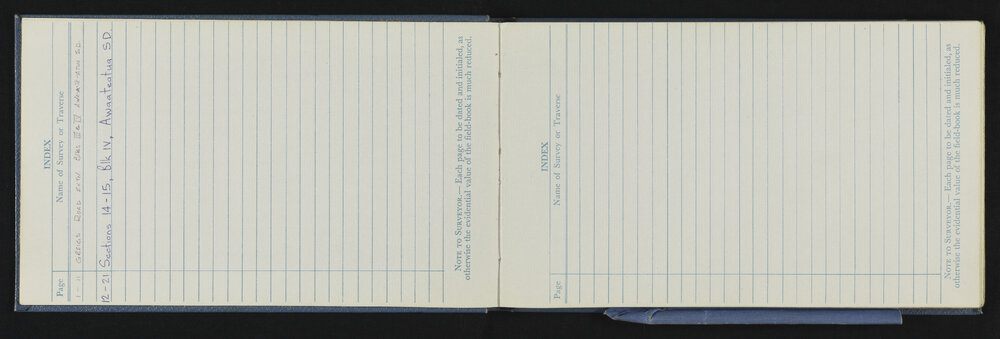 INDEX
Page Name of Survey or Traverse
1 - 11 Greigs Road Extn Blks III & IV Awaateatua S.D.
12 - 21 Sections 14 - 15, Blk IV, Awaateatua S.D.
NOTE TO SURVEYOR.— Each page to be dated and initialed, as
otherwise the evidential value of the field-book is much reduced.
INDEX
Page Name of Survey or Traverse
NOTE TO SURVEYOR.— Each page to be dated and initialed, as
otherwise the evidential value of the field-book is much reduced.